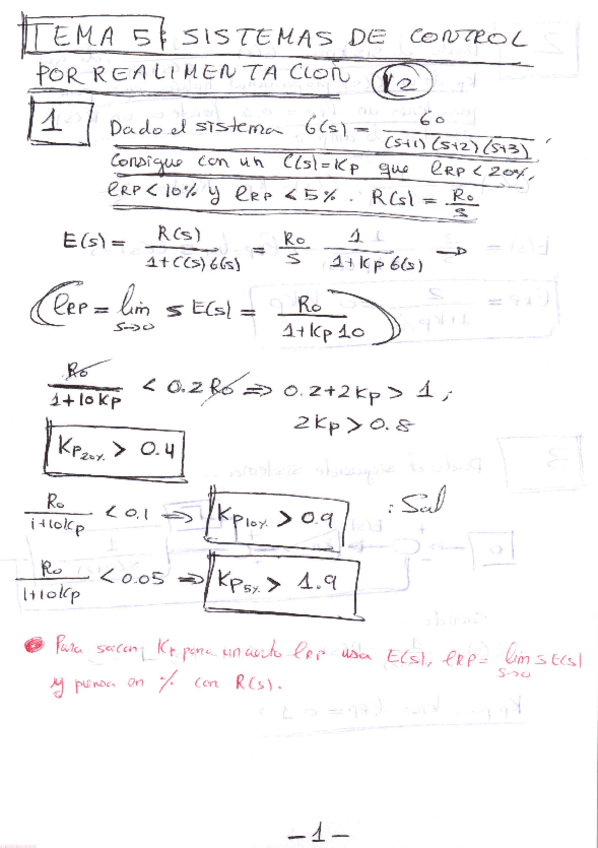 TEMA 5: SISTEMAS DE CONTROL
POR REALIMENTACION K2
1 Dado el sistema G(s) = 60 / (s+1)(s+2)(s+3).
Consigue con un C(s)=Kp que eRP < 20%,
eRP < 10% y eRP < 5%. R(s) = Ro/s
E(s) = R(s)/(1+C(s)G(s)) = Ro/s 1/(1+Kp G(s)) →
eRP = lim s→0 s E(s) = Ro/(1+Kp10)
Ro/(1+10Kp) < 0.2 Ro ⇒ 0.2+2Kp > 1;
2Kp > 0.8
Kp20% > 0.4
Ro/(1+10Kp) < 0.1 ⇒ Kp10% > 0.9 : Sol
Ro/(1+10Kp) < 0.05 ⇒ Kp5% > 1.9
Para sacar Kp para un cierto eRP usa E(s), eRP = lim s→0 s E(s)
y piensa en % con R(s).
-1-